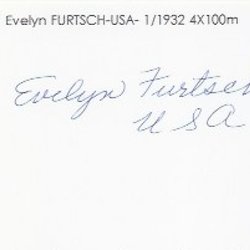 Evelyn FURTSCH-USA- 1/1932 4X100m
Evelyn Furtsch
USA